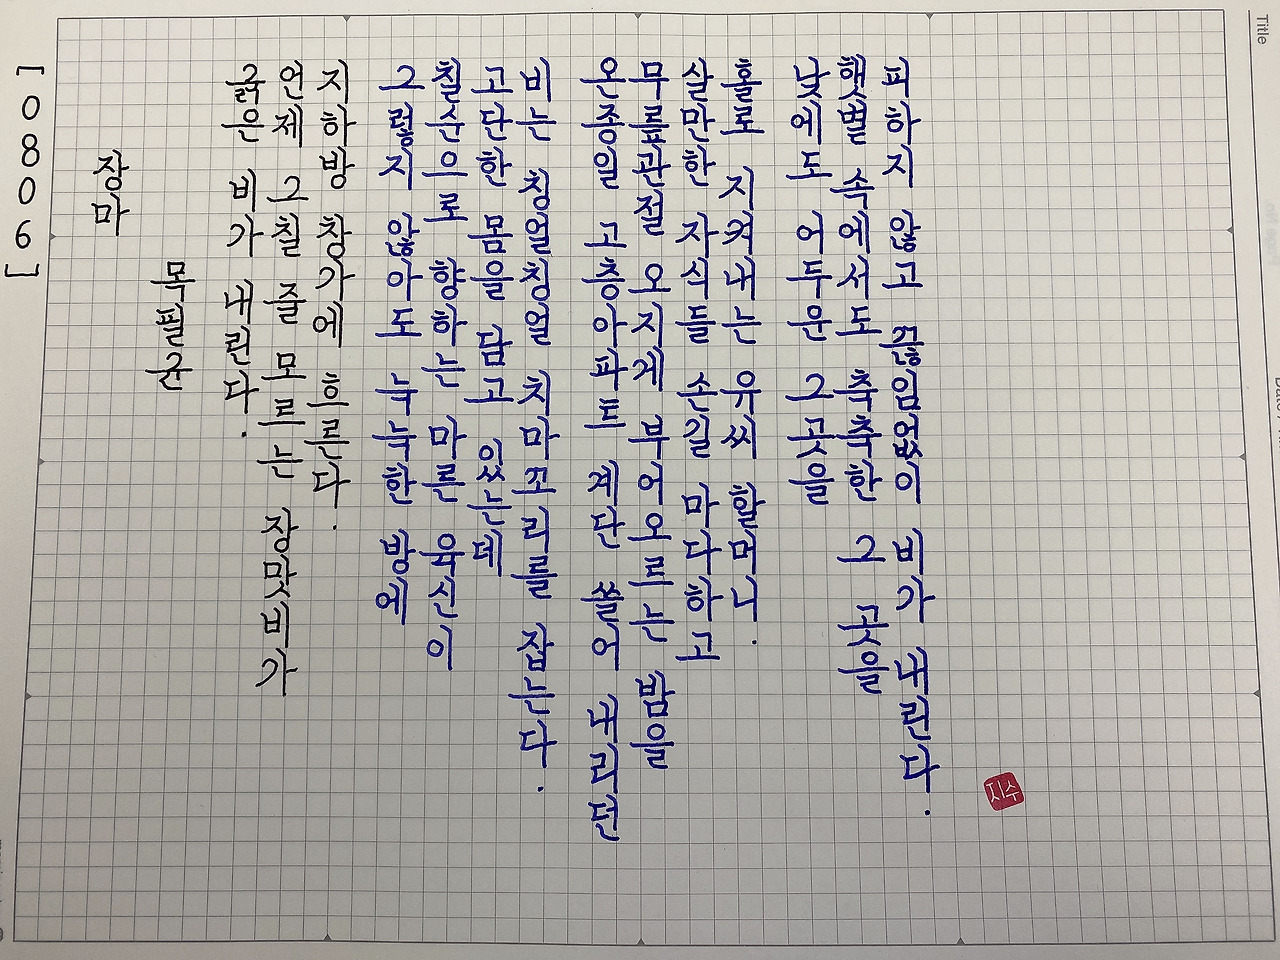 [0806]
장마
목필균
굵은 비가 내린다.
언제 그칠 줄 모르는 장맛비가
지하방 창가에 흐른다.
그렇지 않아도 눅눅한 방에
칠순으로 향하는 마른 육신이
고단한 몸을 담고 있는데
비는 칭얼칭얼 치마꼬리를 잡는다.
온종일 고층아파트 계단 쓸어 내리던
무릎관절 오지게 부어오르는 밤을
살만한 자식들 손길 마다하고
홀로 지켜내는 유씨 할머니.
낮에도 어두운 그 곳을
햇볕 속에서도 축축한 그 곳을
피하지 않고 끊임없이 비가 내린다.
지수
Title